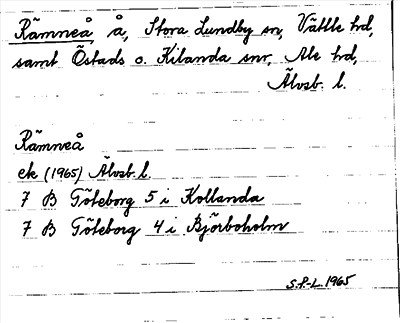 Rämneå, å, Stora Lundby sn, Vättle hd,
samt Östads o. Kilanda snr, Ale hd,
Älvsb. l.
Rämneå
ek (1965) Älvsb. l.
7 B Göteborg 5 i Kollanda
7 B Göteborg 4 i Björboholm
S.P-L. 1965